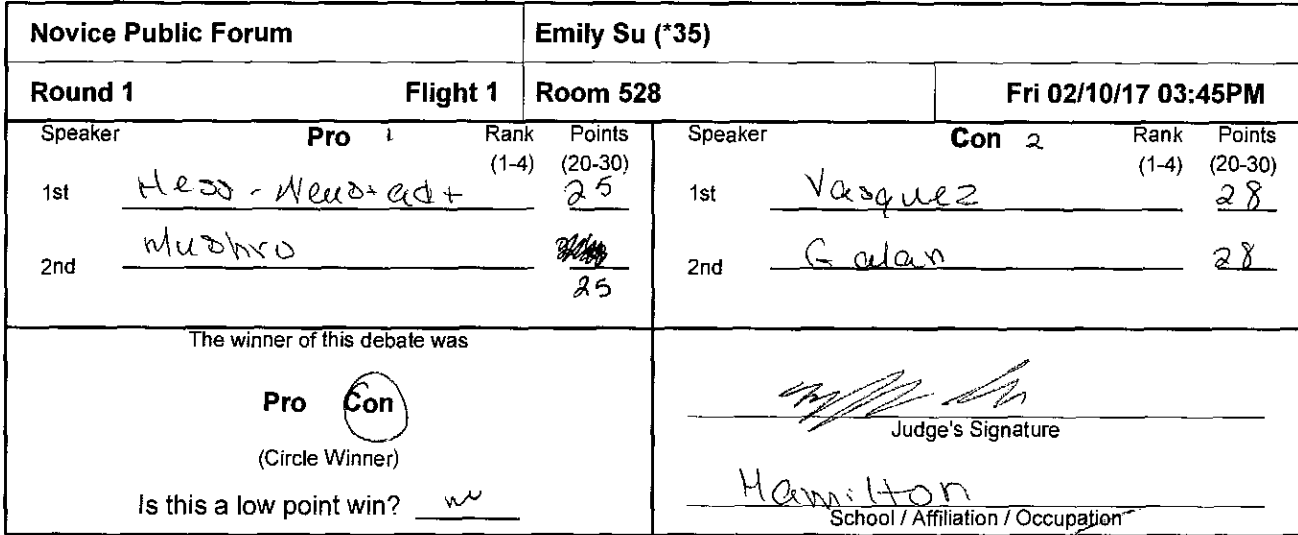 Novice Public Forum Emily Su (*35)
Round 1 Flight 1 Room 528 Fri 02/10/17 03:45PM
Speaker Pro 1 Rank Points
(1-4) (20-30)
1st Hess-Neustadt 25
2nd Mushro
25
Speaker Con 2 Rank Points
(1-4) (20-30)
1st Vasquez 28
2nd Galan 28
The winner of this debate was
Pro Con
(Circle Winner)
Is this a low point win? no
Judge's Signature
Hamilton
School / Affiliation / Occupation